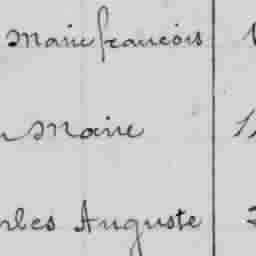 Marie francois
Marie
Auguste